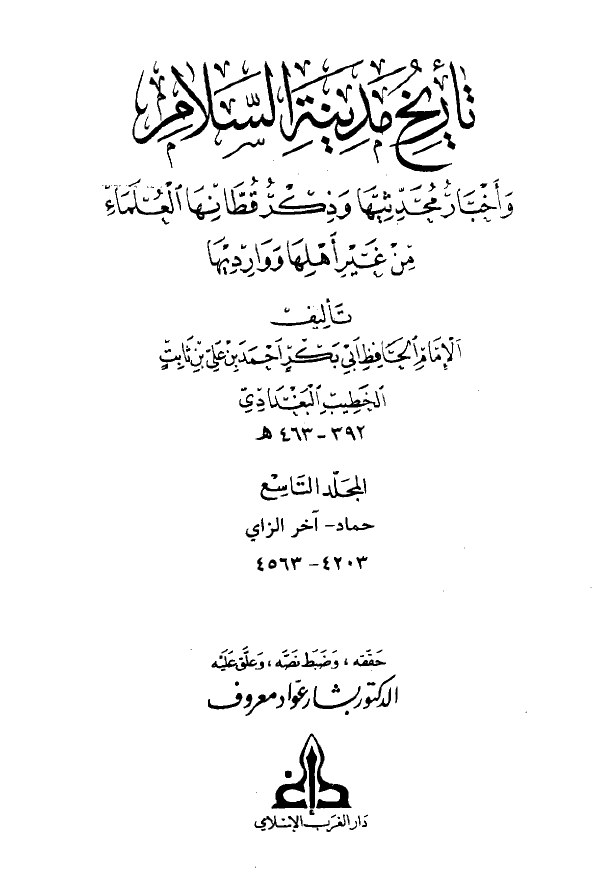 تأريخ مدينة السلام
وَأَخْبَارُ مُحَدِّثِيهَا وَذِكْرُ قُطَّانِهَا الْعُلَمَاءِ
مِنْ غَيْرِ أَهْلِهَا وَوَارِدِيهَا
تأليف
الإمام الحافظ أبي بكر أحمد بن علي بن ثابت
الخطيب البغدادي
٣٩٢ - ٤٦٣ هـ
المجلد التاسع
حماد - آخر الزاي
٤٢٠٣ - ٤٥٦٣
حققه ، وضبط نصه ، وعلق عليه
الدكتور بشار عواد معروف
دار الغرب الإسلامي